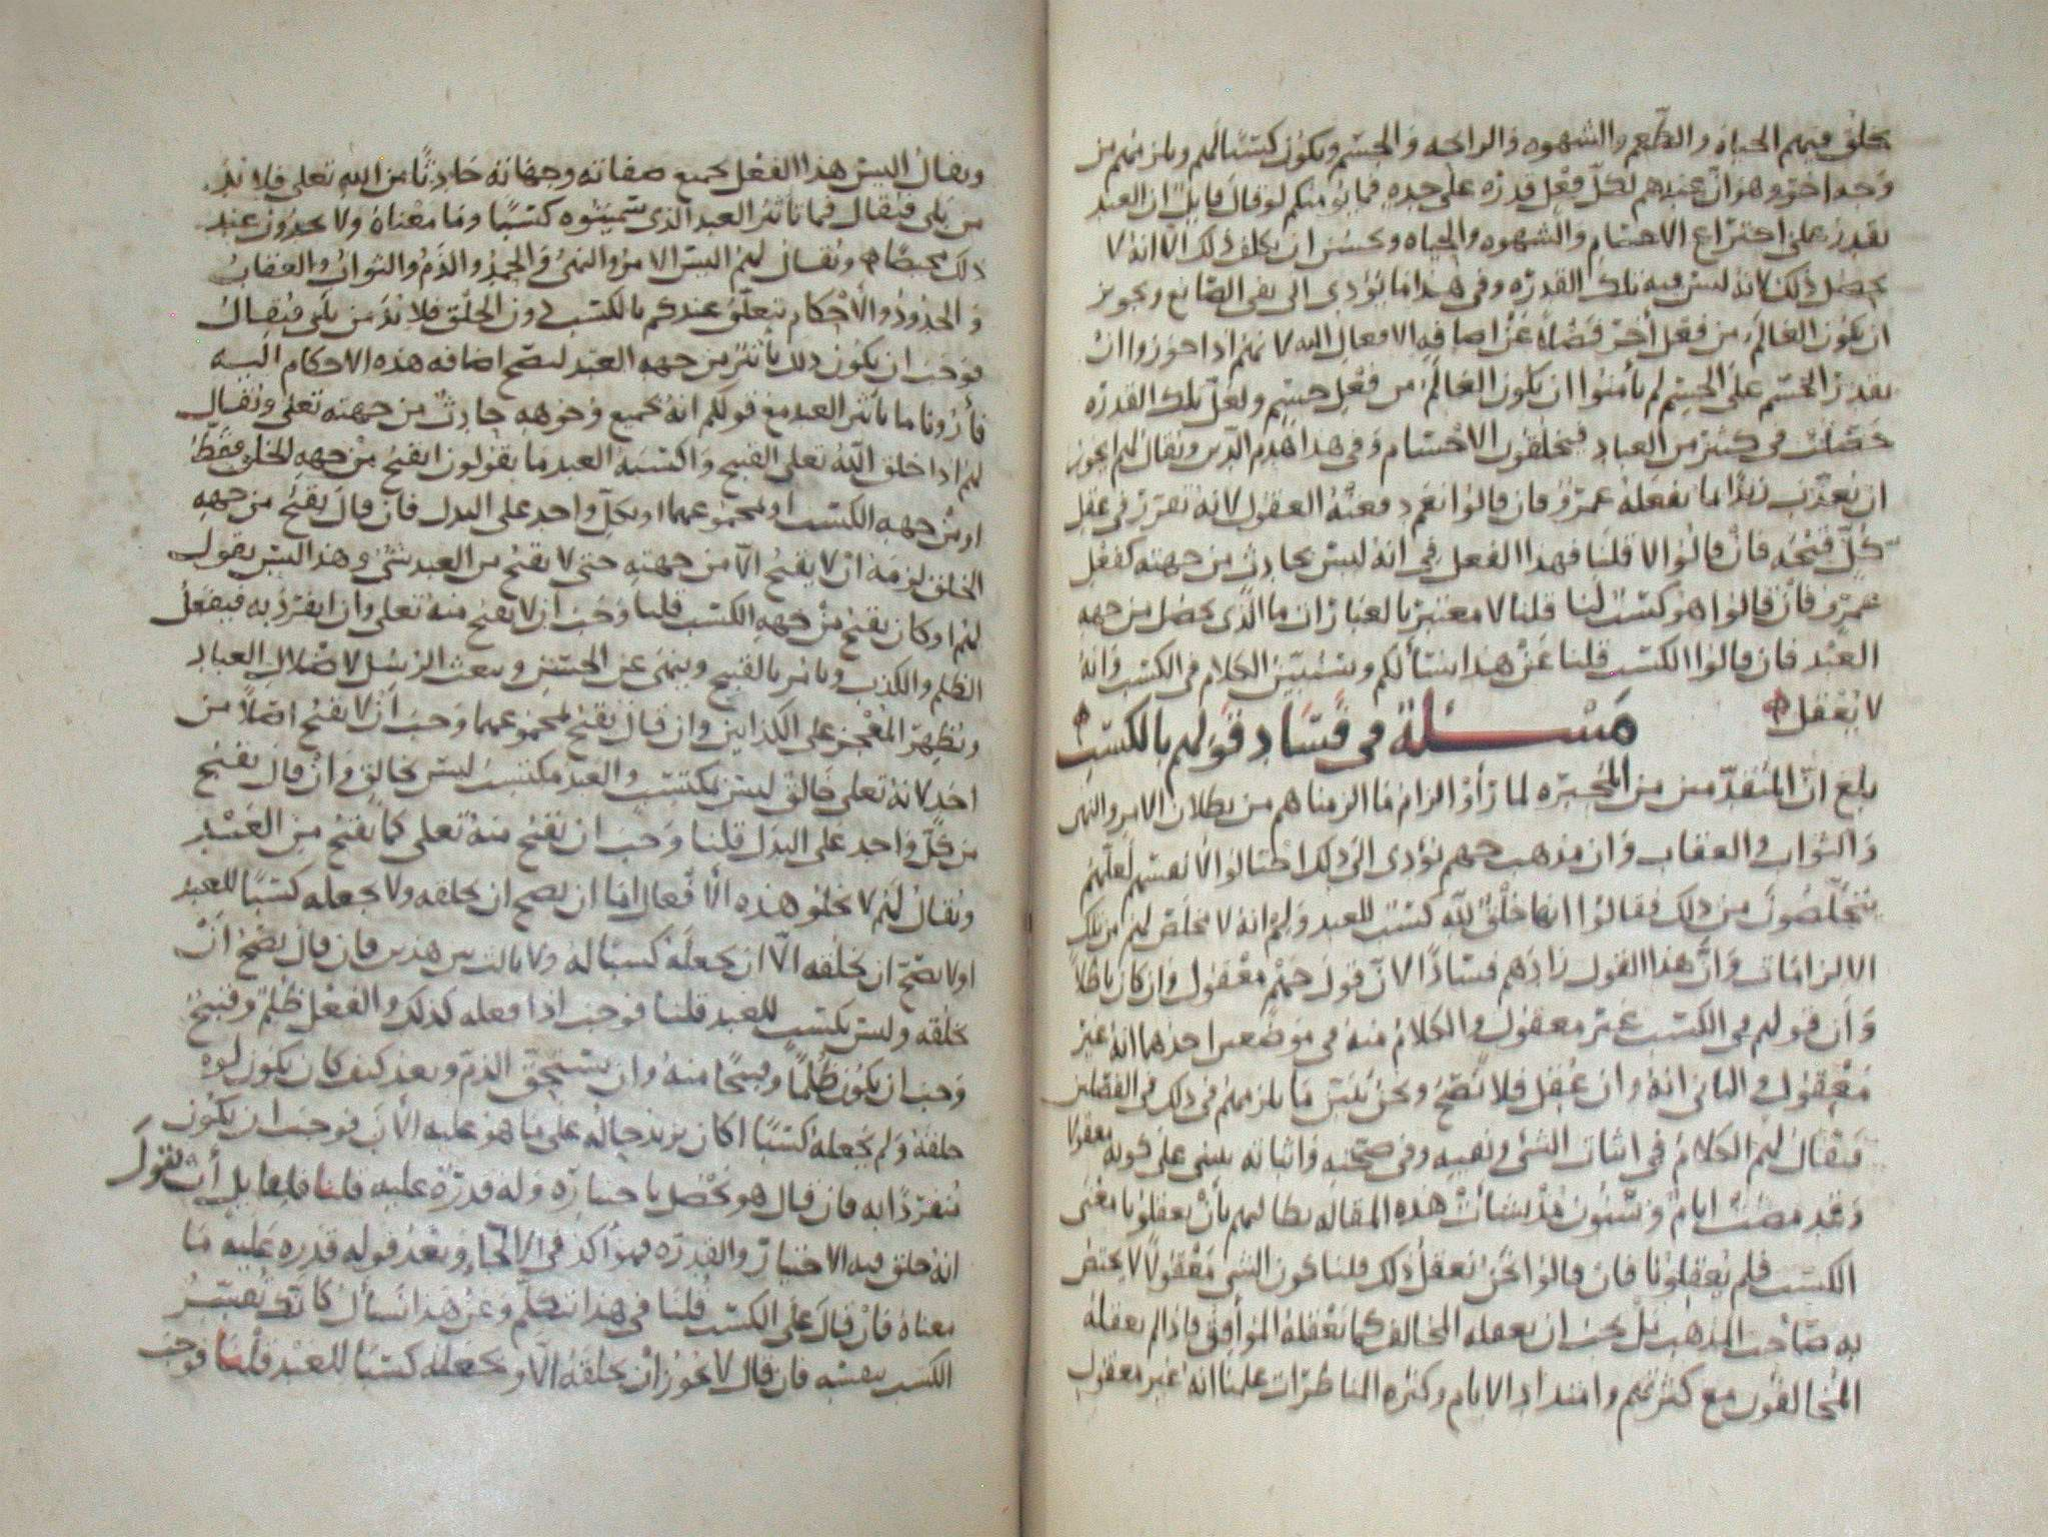 يخلق فيهم الحياه والطعم والشهوه والرايحه والجسم ويكون كسبا لهم ويلزمهم من
وجه اخر وهو ان عندهم لكل فعل قدره على حده فما يؤمنكم لو قال قايل ان العبد
يقدر على اختراع الاجسام والشهوه والحياه ويحسن ان يكلف ذلك الا انه لا
يحصل ذلك لانه ليس فيه تلك القدره وفي هذا ما يؤدي الى نفي الصانع وتجويز
ان يكون العالم من فعل اخر فضلا عن اضافه الافعال اليه لانهم اذا جوزوا ان
يقدر الجسم على الجسم لم يأمنوا ان يكون العالم من فعل جسم ولعل تلك القدره
حصلت في كثير من العباد فيخلقون الاجسام وفي هذا هدم الدين ويقال لهم ايجوز
ان يعذب زيدا بما يفعله عمرو فان قالوا نعم دفعته العقول لانه تقرر في عقل
كل قبحه فان قالوا لا قلنا فهذا الفعل في انه ليس بحادث من جهته كفعل
عمرو فان قالوا هو كسب لنا قلنا لا معتبر بالعبارات ما الذي يحصل من جهه
العبد فان قالوا الكسب قلنا عن هذا نسألكم وسنبين الكلام في الكسب وانه
لا يعقل
مسئلة في فساد قولهم بالكسب
بلغ ان المتقدمين من المجبره لما رأوا الزام ما الزمناهم من بطلان الامر والنهي
والثواب والعقاب وان مذهب جهم يؤدي الى ذلك احتالوا لانفسهم لعلهم
يتخلصون من ذلك فقالوا انها خلق لله كسب للعبد ولم انه لا مخلص لهم من تلك
الالزامات وان هذا القول زادهم فسادا لان قول جهم معقول وان كان باطلا
وان قولهم في الكسب غير معقول والكلام منه في موضعين احدهما انه غير
معقول والثاني انه وان عقل فلا يصح ونحن نبين ما يلزمهم في ذلك في الفصلين
فيقال لهم الكلام في اثبات الشي ونفيه وفي صحته واثباته يبنى على كونه معقولا
وقد مضت ايام وسنون مذ نشأت هذه المقاله نطالبهم بأن يعقلونا معنى
الكسب فلم يعقلونا فان قالوا نحن نعقل ذلك قلنا كون الشي معقولا لا يختص
به صاحب المذهب بل يجب ان يعقله المخالف كما يعقله الموافق فاذا لم يعقله
المخالفون مع كثرتهم وامتداد الايام وكثره المناظرات علمنا انه غير معقول
ويقال اليس هذا الفعل بجميع صفاته وجهاته حادثا من الله تعلى فلا بد
من بلى فيقال فما تاثير العبد الذي سميتموه كسبا وما معناه ولا يجدون عند
ذلك محيصا ويقال لهم اليس الامر والنهي والحمد والذم والثواب والعقاب
والحدود والاحكام يتعلق عندكم بالكسب دون الخلق فلا بد من بلى فيقال
فوجب ان يكون ذلك بأثير من جهه العبد ليصح اضافه هذه الاحكام اليه
فأرونا ما تأثير العبد مع قولكم انه بجميع وجوهه حادث من جهته تعلى ويقال
لهم اذا خلق الله تعلى القبيح واكتسبه العبد ما يقولون ايقبح من جهه الخلق فقط
او من جهه الكسب او بمجموعهما او بكل واحد على البدل فان قال يقبح من جهه
الخلق لزمه ان لا يقبح الا من جهته حتى لا يقبح من العبد شي وهذا ليس بقول
لهم او كان يقبح من جهه الكسب قلنا وجب ان لا يقبح منه تعلى وان انفرد به فيفعل
الظلم والكذب ويامر بالقبيح وينهى عن الحسن ويبعث الرسل لاضلال العباد
ويظهر المعجز على الكذابين وان قال يقبح بمجموعهما وجب ان لا يقبح اصلا من
احد لانه تعلى خالق ليس بمكتسب والعبد مكتسب ليس بخالق وان قال يقبح
من كل واحد على البدل قلنا وجب ان يقبح منه تعلى كما يقبح من العبد
ويقال لهم لا يخلو هذه الافعال اما ان يصح ان يخلقه ولا يجعله كسبا للعبد
او لا يصح ان يخلقه الا ان يجعله كسبا له ولا ثالث بين هذين فان قال يصح ان
يخلقه وليس بكسب للعبد قلنا فوجب اذا فعله كذلك والفعل ظلم وقبيح
وجب ان يكون ظلما وقبيحا منه وان يستحق الذم وبعد كيف كان يكون لو
خلقه ولم يجعله كسبا اكان يزيد حاله على ما هو عليه الان فوجب ان يكون
منفردا به فان قال هو يحصل باختياره وله قدره عليه قلنا فلقايل أن يقول
انه خلق فيه الاختيار والقدره فهو اكد في الالجاء وبعد قوله قدره عليه ما
معناه فان قال على الكسب قلنا في هذا نتكلم وعن هذا نسأل كأنك تفسر
الكسب بنفسه فان قال لا يجوز ان يخلقه الا ويجعله كسبا للعبد قلنا فوجب